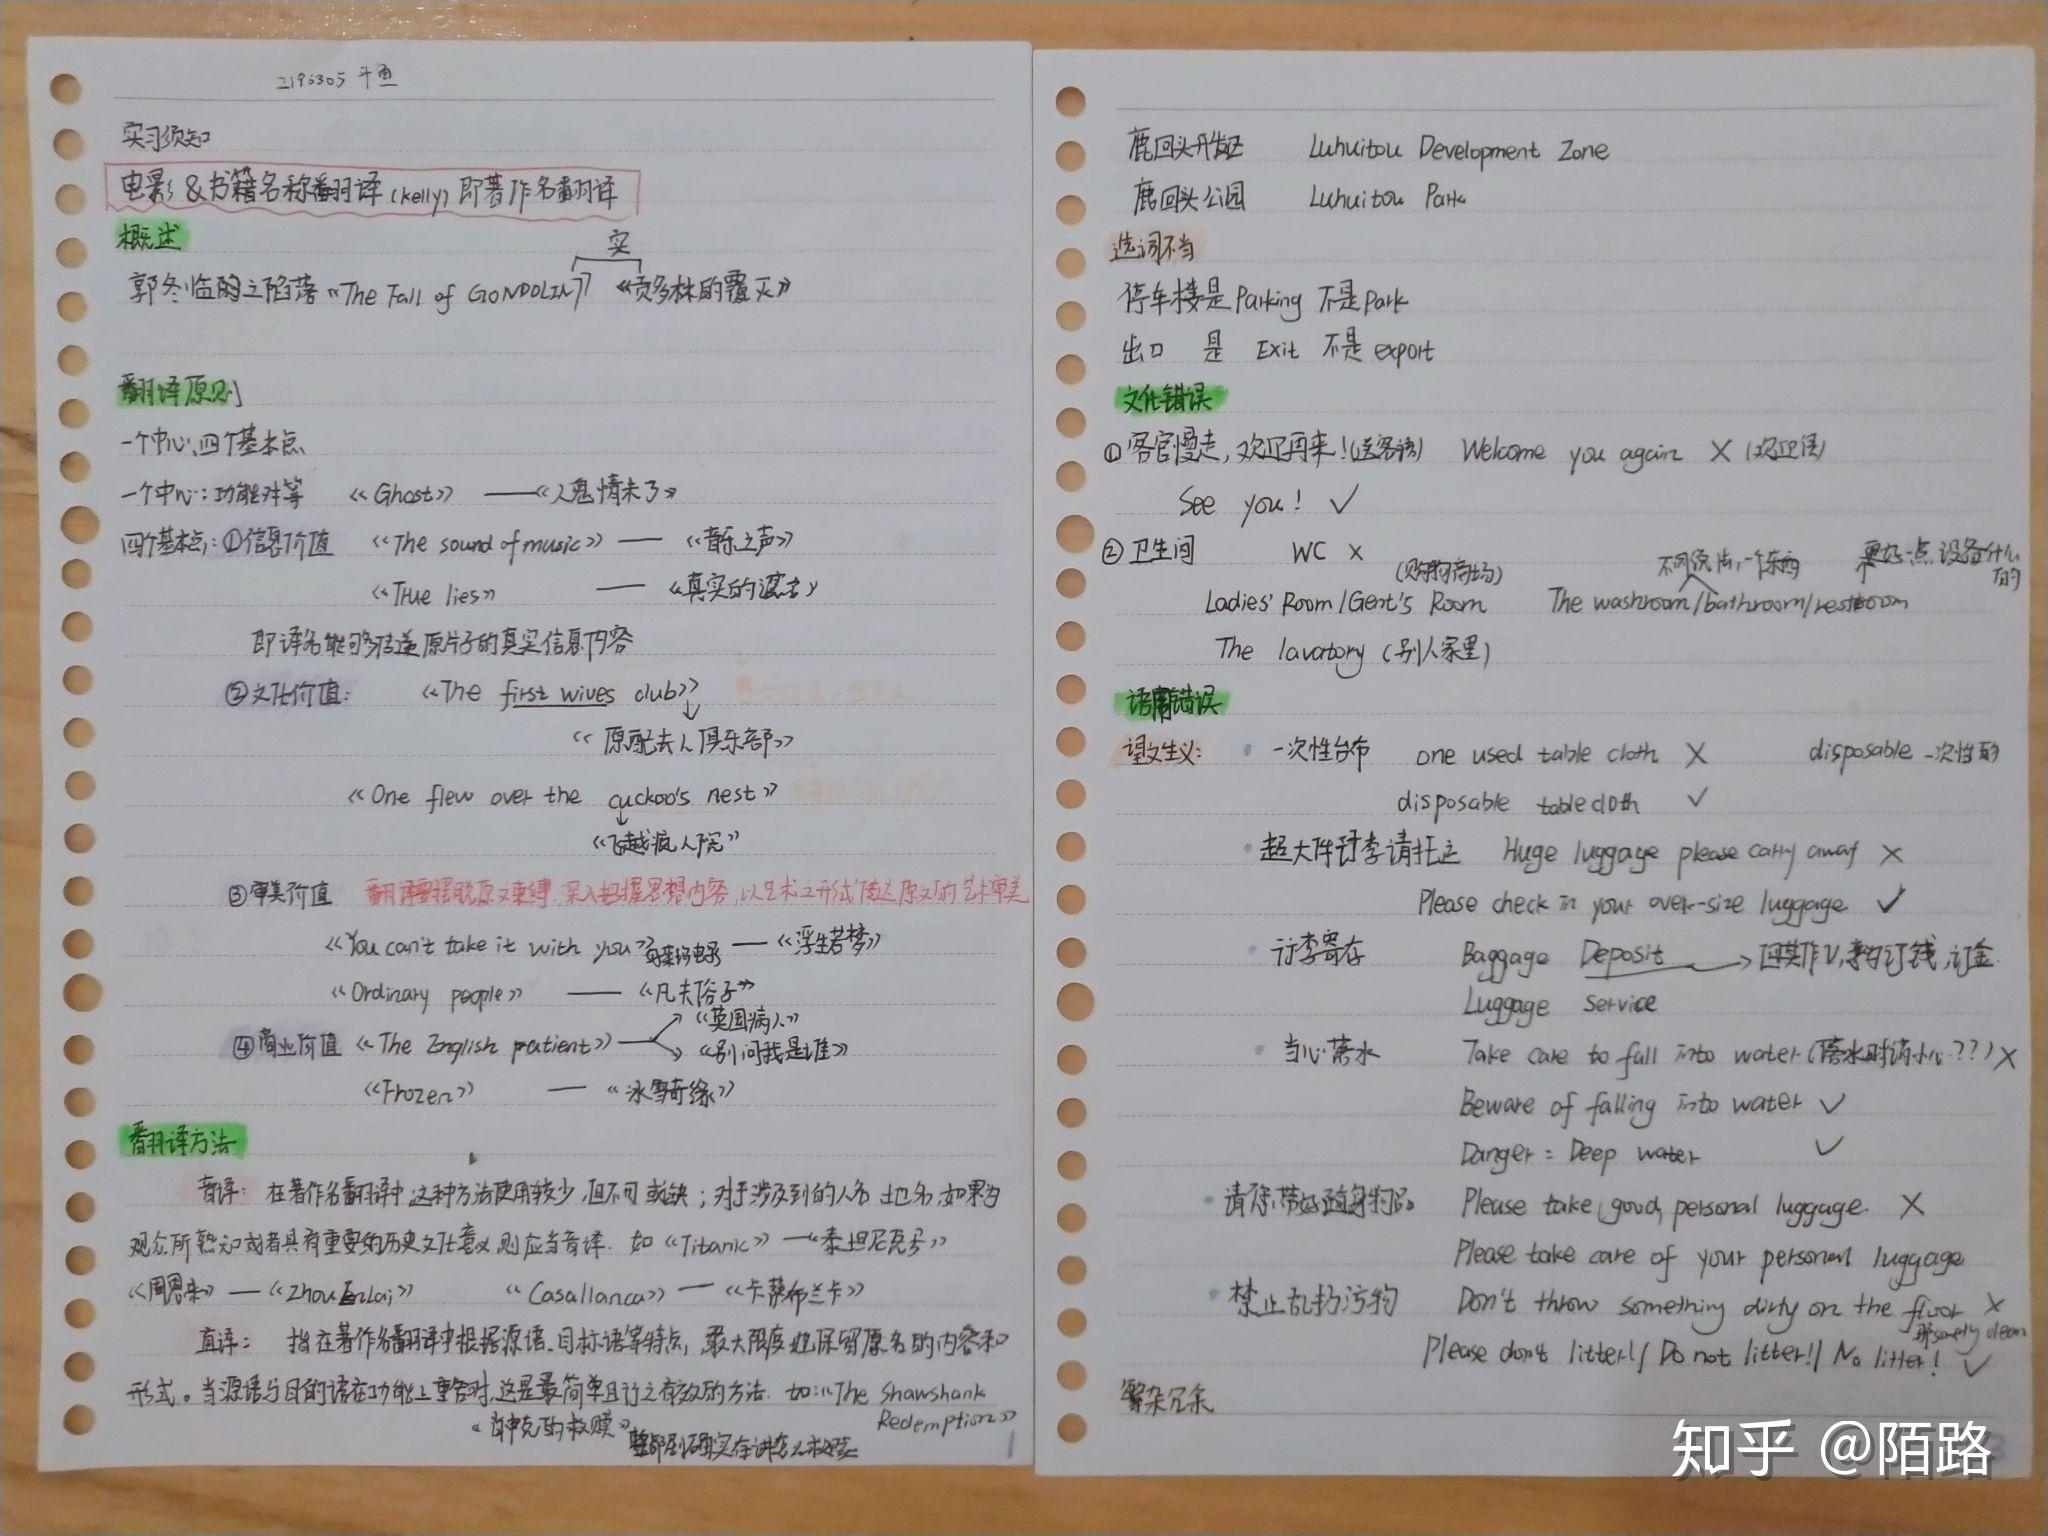 2196305 斗鱼
实习须知
电影&书籍名称翻译(kelly)即著作名翻译
概述
实
郭冬临的之陷落《The Fall of GONDOLIN》《贡多林的覆灭》
翻译原则
一个中心,四个基本点
一个中心:功能对等 《Ghost》——《人鬼情未了》
四个基本点:①信息价值 《The sound of music》——《音乐之声》
《True lies》——《真实的谎言》
即译名能够传递原片子的真实信息内容
②文化价值: 《The first wives club》
《原配夫人俱乐部》
《One flew over the cuckoo's nest》
《飞越疯人院》
③审美价值 翻译要摆脱原文束缚,深入把握思想内容,以艺术之形式传达原文的艺术审美
《You can't take it with you》 ——《浮生若梦》
《Ordinary people》——《凡夫俗子》
《英国病人》
④商业价值《The English patient》《别问我是谁》
《Frozen》——《冰雪奇缘》
翻译方法
音译: 在著作名翻译中这种方法使用较少,但不可或缺;对于涉及到的人名 地名,如果为
观众所熟知或者具有重要的历史文化意义,则应当音译. 如《Titanic》——《泰坦尼克号》
《周恩来》——《Zhou Enlai》 《Casallanca》——《卡萨布兰卡》
直译: 指在著作名翻译中根据源语.目标语等特点,最大限度地保留原名的内容和
形式。当源语与目的语在功能上重合时,这是最简单且行之有效的方法. 如:《The Shawshank
Redemption》
《肖申克的救赎》
1
鹿回头开发区 Luhuitou Development Zone
鹿回头公园 Luhuitou Park
选词不当
停车楼是Parking 不是park
出口 是 Exit 不是export
文化错误
①客官慢走,欢迎再来!(送客语) Welcome you again X (欢迎语)
See you! ✓
②卫生间 WC X
(购物商场) 不同说法,一个东西 更好一点,设备什么的
Ladies' Room/Gent's Room The washroom/bathroom/restroom
The lavatory (别人家里)
语用错误
望文生义: 一次性台布 one used table cloth X disposable 一次性的
disposable tablecloth ✓
超大件行李请托运 Huge luggage please carry away X
Please check in your over-size luggage ✓
行李寄存 Baggage Deposit
Luggage service
当心落水 Take care to fall into water (落水时请小心??) X
Beware of falling into water ✓
Danger: Deep water ✓
请您带好随身物品 Please take good personal luggage. X
Please take care of your personal luggage
禁止乱扔污物 Don't throw something dirty on the floor X
Please don't litter!/ Do not litter!/ No litter! ✓
繁杂冗余
知乎 @陌路